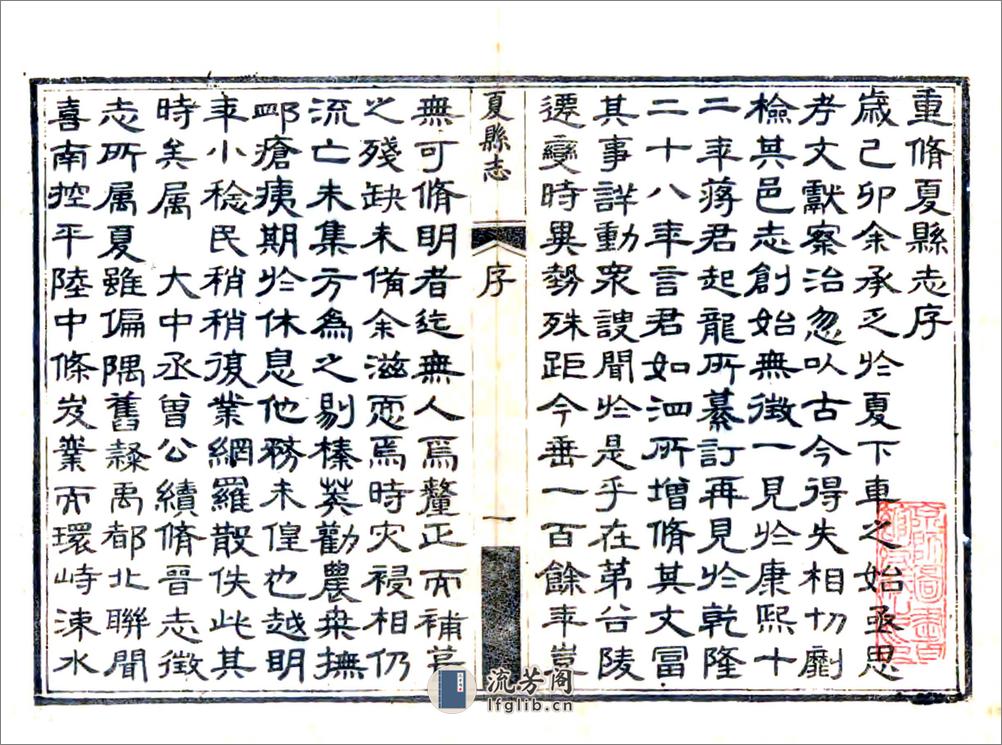 重脩夏縣志序
歲己卯余承乏於夏下車之始亟思
考文獻察治忽以古今得失相切劘
檢其邑志創始無徵一見於康熙十
二年蔣君起龍所纂訂再見於乾隆
二十八年言君如泗所增脩其文富
其事詳動眾謏聞於是乎在第谷陵
遷變時異勢殊距今垂一百餘年豈
夏縣志
序
一
無可脩明者迄無人焉釐正而補葺
之殘缺未備余滋恧焉時灾祲相仍
流亡未集方為之剔榛莽勸農桑撫
卹瘡痍期於休息他務未遑也越明
年小稔民稍稍復業網羅散佚此其
時矣属 大中丞曾公續脩晉志徵
志所属夏雖偏隅舊隸禹都北聯聞
喜南控平陸中條岌嶪而環峙涑水
流芳阁
lfglib.cn